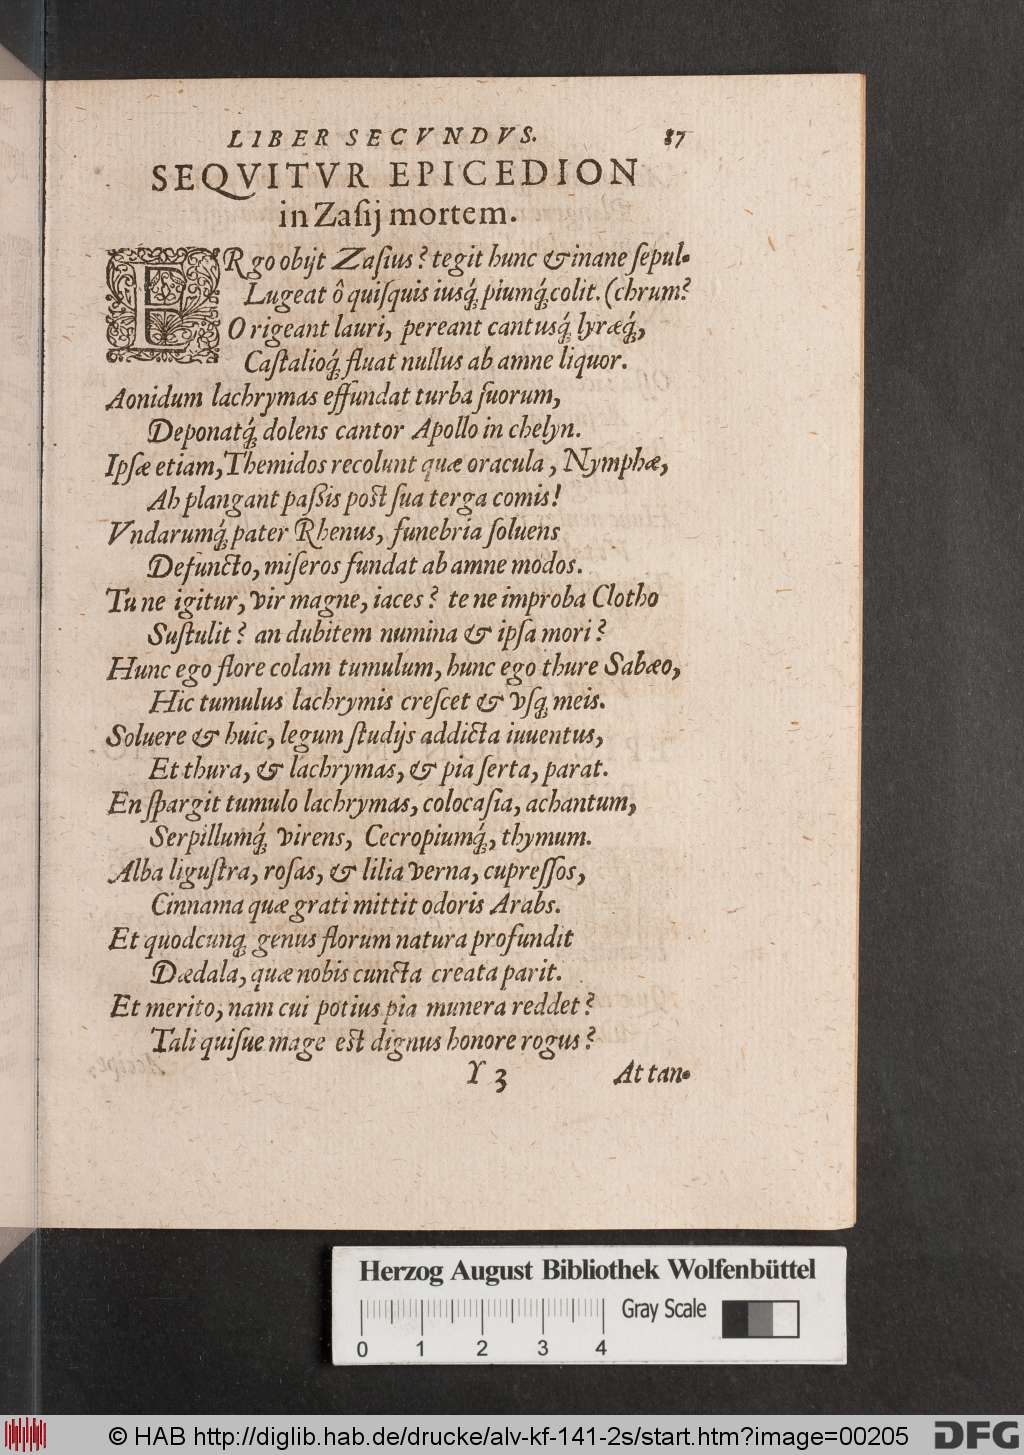 LIBER SECVNDVS. 87
SEQVITVR EPICEDION
in Zaſij mortem.
ERgo obijt Zaſius? tegit hunc & inane ſepul-
Lugeat ô quiſquis iusq́; piumq́; colit. (chrum?
O rigeant lauri, pereant cantusq́; lyræq́;,
Caſtalioq́; fluat nullus ab amne liquor.
Aonidum lachrymas effundat turba ſuorum,
Deponatq́; dolens cantor Apollo in chelyn.
Ipſæ etiam, Themidos recolunt quæ oracula, Nymphæ,
Ah plangant paßis poſt ſua terga comis!
Vndarumq́; pater Rhenus, funebria ſoluens
Defuncto, miſeros fundat ab amne modos.
Tu ne igitur, vir magne, iaces? te ne improba Clotho
Suſtulit? an dubitem numina & ipſa mori?
Hunc ego flore colam tumulum, hunc ego thure Sabæo,
Hic tumulus lachrymis creſcet & vſq; meis.
Soluere & huic, legum ſtudijs addicta iuuentus,
Et thura, & lachrymas, & pia ſerta, parat.
En ſpargit tumulo lachrymas, colocaſia, achantum,
Serpillumq́; virens, Cecropiumq́;, thymum.
Alba liguſtra, roſas, & lilia verna, cupreſſos,
Cinnama quæ grati mittit odoris Arabs.
Et quodcunq; genus florum natura profundit
Dædala, quæ nobis cuncta creata parit.
Et merito, nam cui potius pia munera reddet?
Tali quiſue mage eſt dignus honore rogus?
Y 3 At tan-
Herzog August Bibliothek Wolfenbüttel
Gray Scale
0 1 2 3 4
© HAB http://diglib.hab.de/drucke/alv-kf-141-2s/start.htm?image=00205 DFG